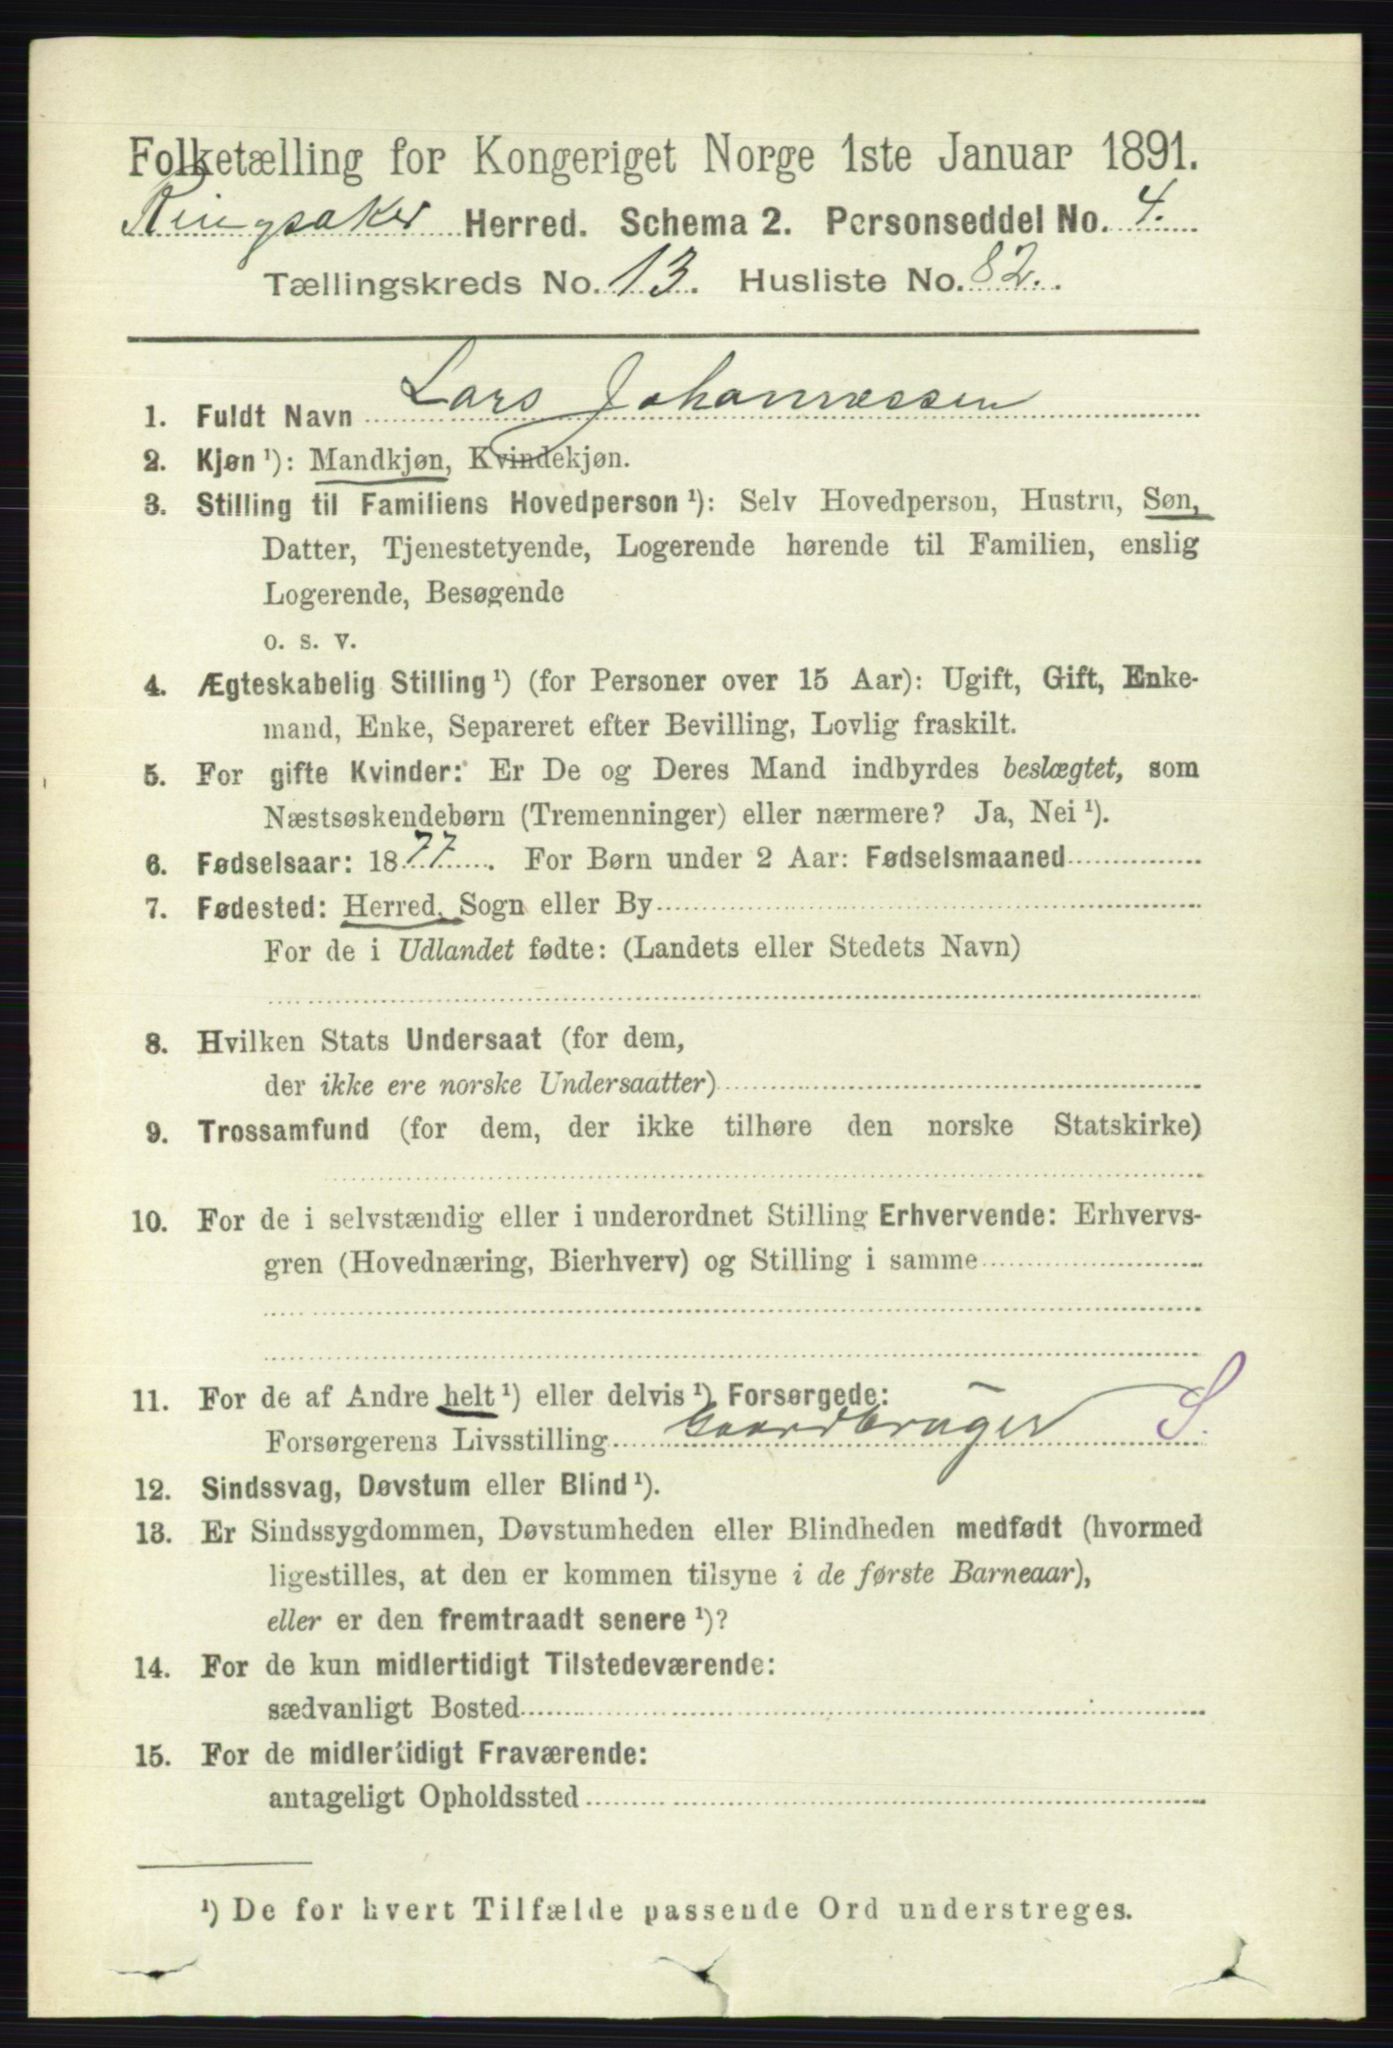 Folketælling for Kongeriget Norge 1ste Januar 1891.
Ringsaker Herred. Schema 2. Personseddel No. 4.
Tællingskreds No. 13. Husliste No. 82.
1. Fuldt Navn Lars Johannessen
2. Kjøn ¹): Mandkjøn, Kvindekjøn.
3. Stilling til Familiens Hovedperson ¹): Selv Hovedperson, Hustru, Søn,
Datter, Tjenestetyende, Logerende hørende til Familien, enslig
Logerende, Besøgende
o. s. v.
4. Ægteskabelig Stilling ¹) (for Personer over 15 Aar): Ugift, Gift, Enke-
mand, Enke, Separeret efter Bevilling, Lovlig fraskilt.
5. For gifte Kvinder: Er De og Deres Mand indbyrdes beslægtet, som
Næstsøskendebørn (Tremenninger) eller nærmere? Ja, Nei ¹).
6. Fødselsaar: 1877. For Børn under 2 Aar: Fødselsmaaned
7. Fødested: Herred, Sogn eller By
For de i Udlandet fødte: (Landets eller Stedets Navn)
8. Hvilken Stats Undersaat (for dem,
der ikke ere norske Undersaatter)
9. Trossamfund (for dem, der ikke tilhøre den norske Statskirke)
10. For de i selvstændig eller i underordnet Stilling Erhvervende: Erhvervs-
gren (Hovednæring, Bierhverv) og Stilling i samme
11. For de af Andre helt ¹) eller delvis ¹) Forsørgede:
Forsørgerens Livsstilling Gaardbruger S.
12. Sindssvag, Døvstum eller Blind ¹).
13. Er Sindssygdommen, Døvstumheden eller Blindheden medfødt (hvormed
ligestilles, at den er kommen tilsyne i de første Barneaar),
eller er den fremtraadt senere ¹)?
14. For de kun midlertidigt Tilstedeværende:
sædvanligt Bosted
15. For de midlertidigt Fraværende:
antageligt Opholdssted
¹) De for hvert Tilfælde passende Ord understreges.